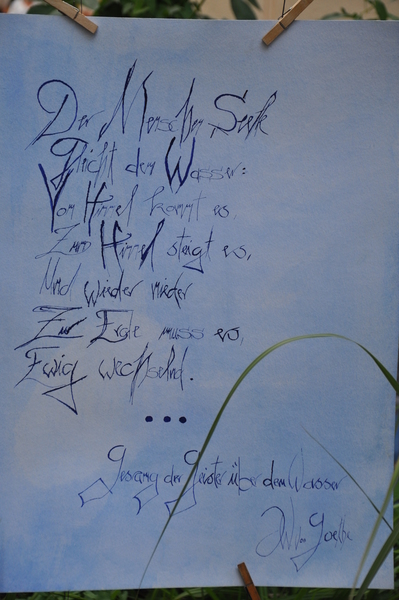 Der Menschen Seele
Gleicht dem Wasser:
Vom Himmel kommt es,
Zum Himmel steigt es,
Und wieder nieder
Zur Erde muss es,
Ewig wechselnd.
...
Gesang der Geister über den Wasser
JW von Goethe